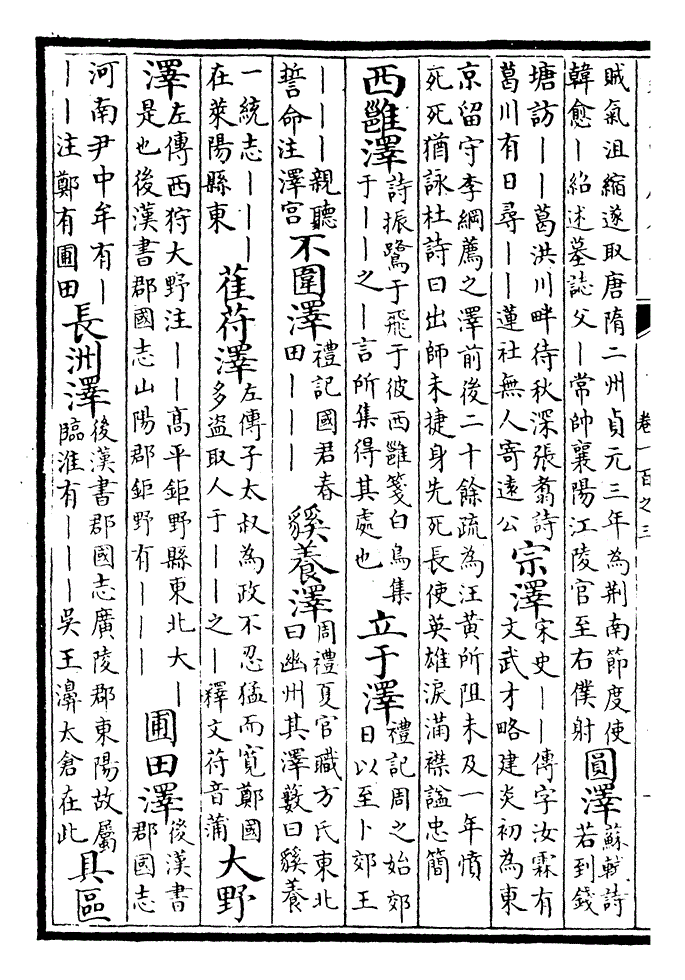 賊氣沮縮遂取唐隋二州貞元三年為荆南節度使
韓愈丨紹述墓誌父丨常帥襄陽江陵官至右僕射
圓澤
蘇軾詩
若到錢
塘訪丨丨葛洪川畔待秋深張翥詩
葛川有日尋丨丨蓮社無人寄遠公
宗澤
宋史丨丨傳字汝霖有
文武才略建炎初為東
京留守李綱薦之澤前後二十餘疏為汪黄所阻未及一年憤
死死猶詠杜詩曰出師未捷身先死長使英雄淚滿襟諡忠簡
西雝澤
詩振鷺于飛于彼西雝箋白鳥集
于丨丨之丨言所集得其處也
立于澤
禮記周之始郊
日以至卜郊王
丨丨丨親聽
誓命注澤宫
不圍澤
禮記國君春
田丨丨丨
貕養澤
周禮夏官職方氏東北
曰幽州其澤藪曰貕養
一統志丨丨丨
在萊陽縣東
萑苻澤
左傳子太叔為政不忍猛而寛鄭國
多盗取人于丨丨之丨釋文苻音蒲
大野
澤
左傳西狩大野注丨丨高平鉅野縣東北大丨
是也後漢書郡國志山陽郡鉅野有丨丨丨
圃田澤
後漢書
郡國志
河南尹中牟有丨
丨丨注鄭有圃田
長洲澤
後漢書郡國志廣陵郡東陽故屬
臨淮有丨丨丨吳王濞太倉在此
具區
卷一百之三